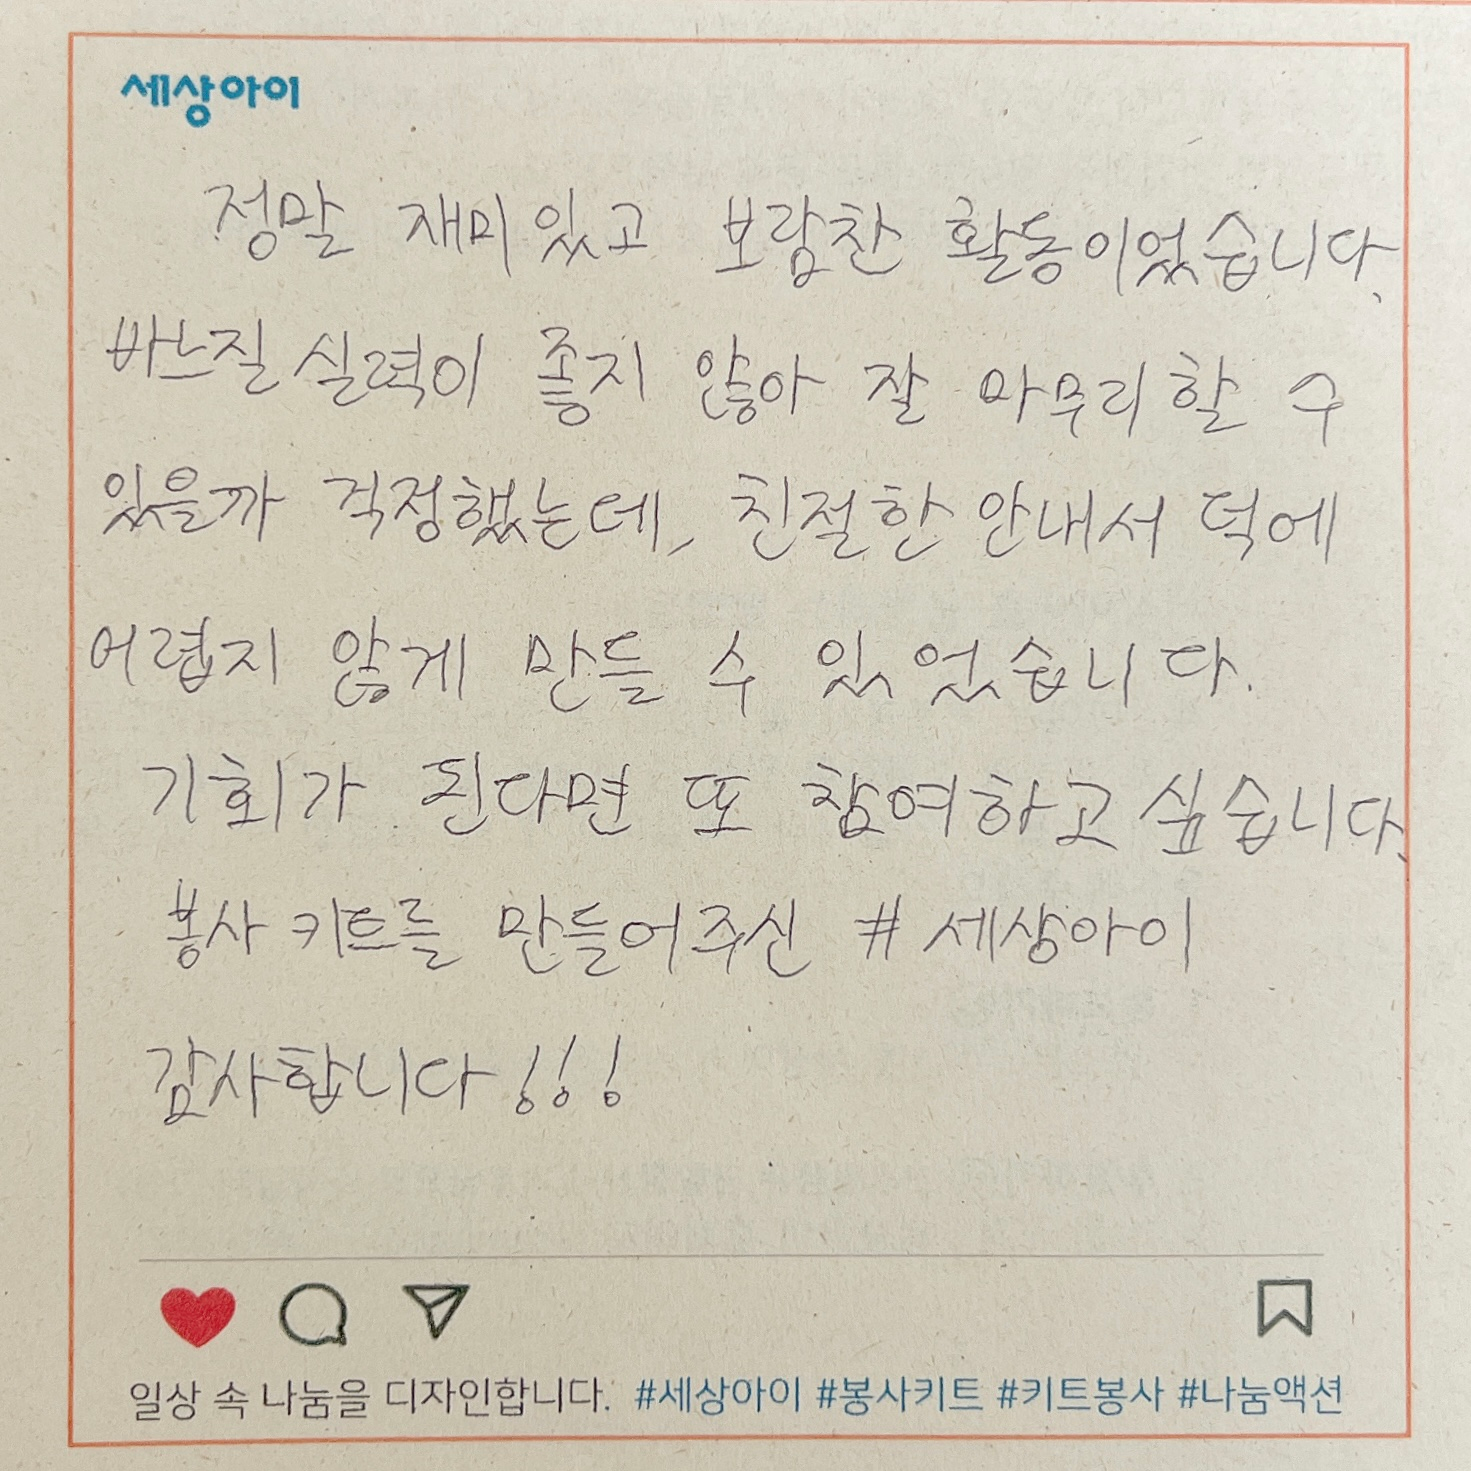 세상아이
정말 재미있고 보람찬 활동이었습니다.
바느질 실력이 좋지 않아 잘 마무리할 수
있을까 걱정했는데, 친절한 안내서 덕에
어렵지 않게 만들 수 있었습니다.
기회가 된다면 또 참여하고 싶습니다.
봉사 키트를 만들어주신 #세상아이
감사합니다!!!
일상 속 나눔을 디자인합니다. #세상아이 #봉사키트 #키트봉사 #나눔액션